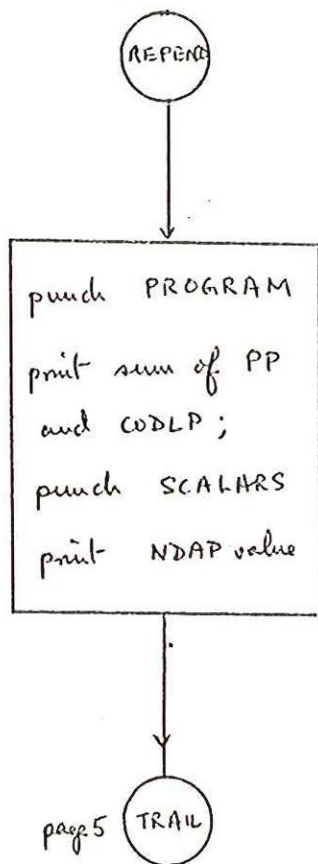 REPEND
punch PROGRAM
print sum of PP
and CODLP;
punch SCALARS
print NDAP value
page 5 TRAIL